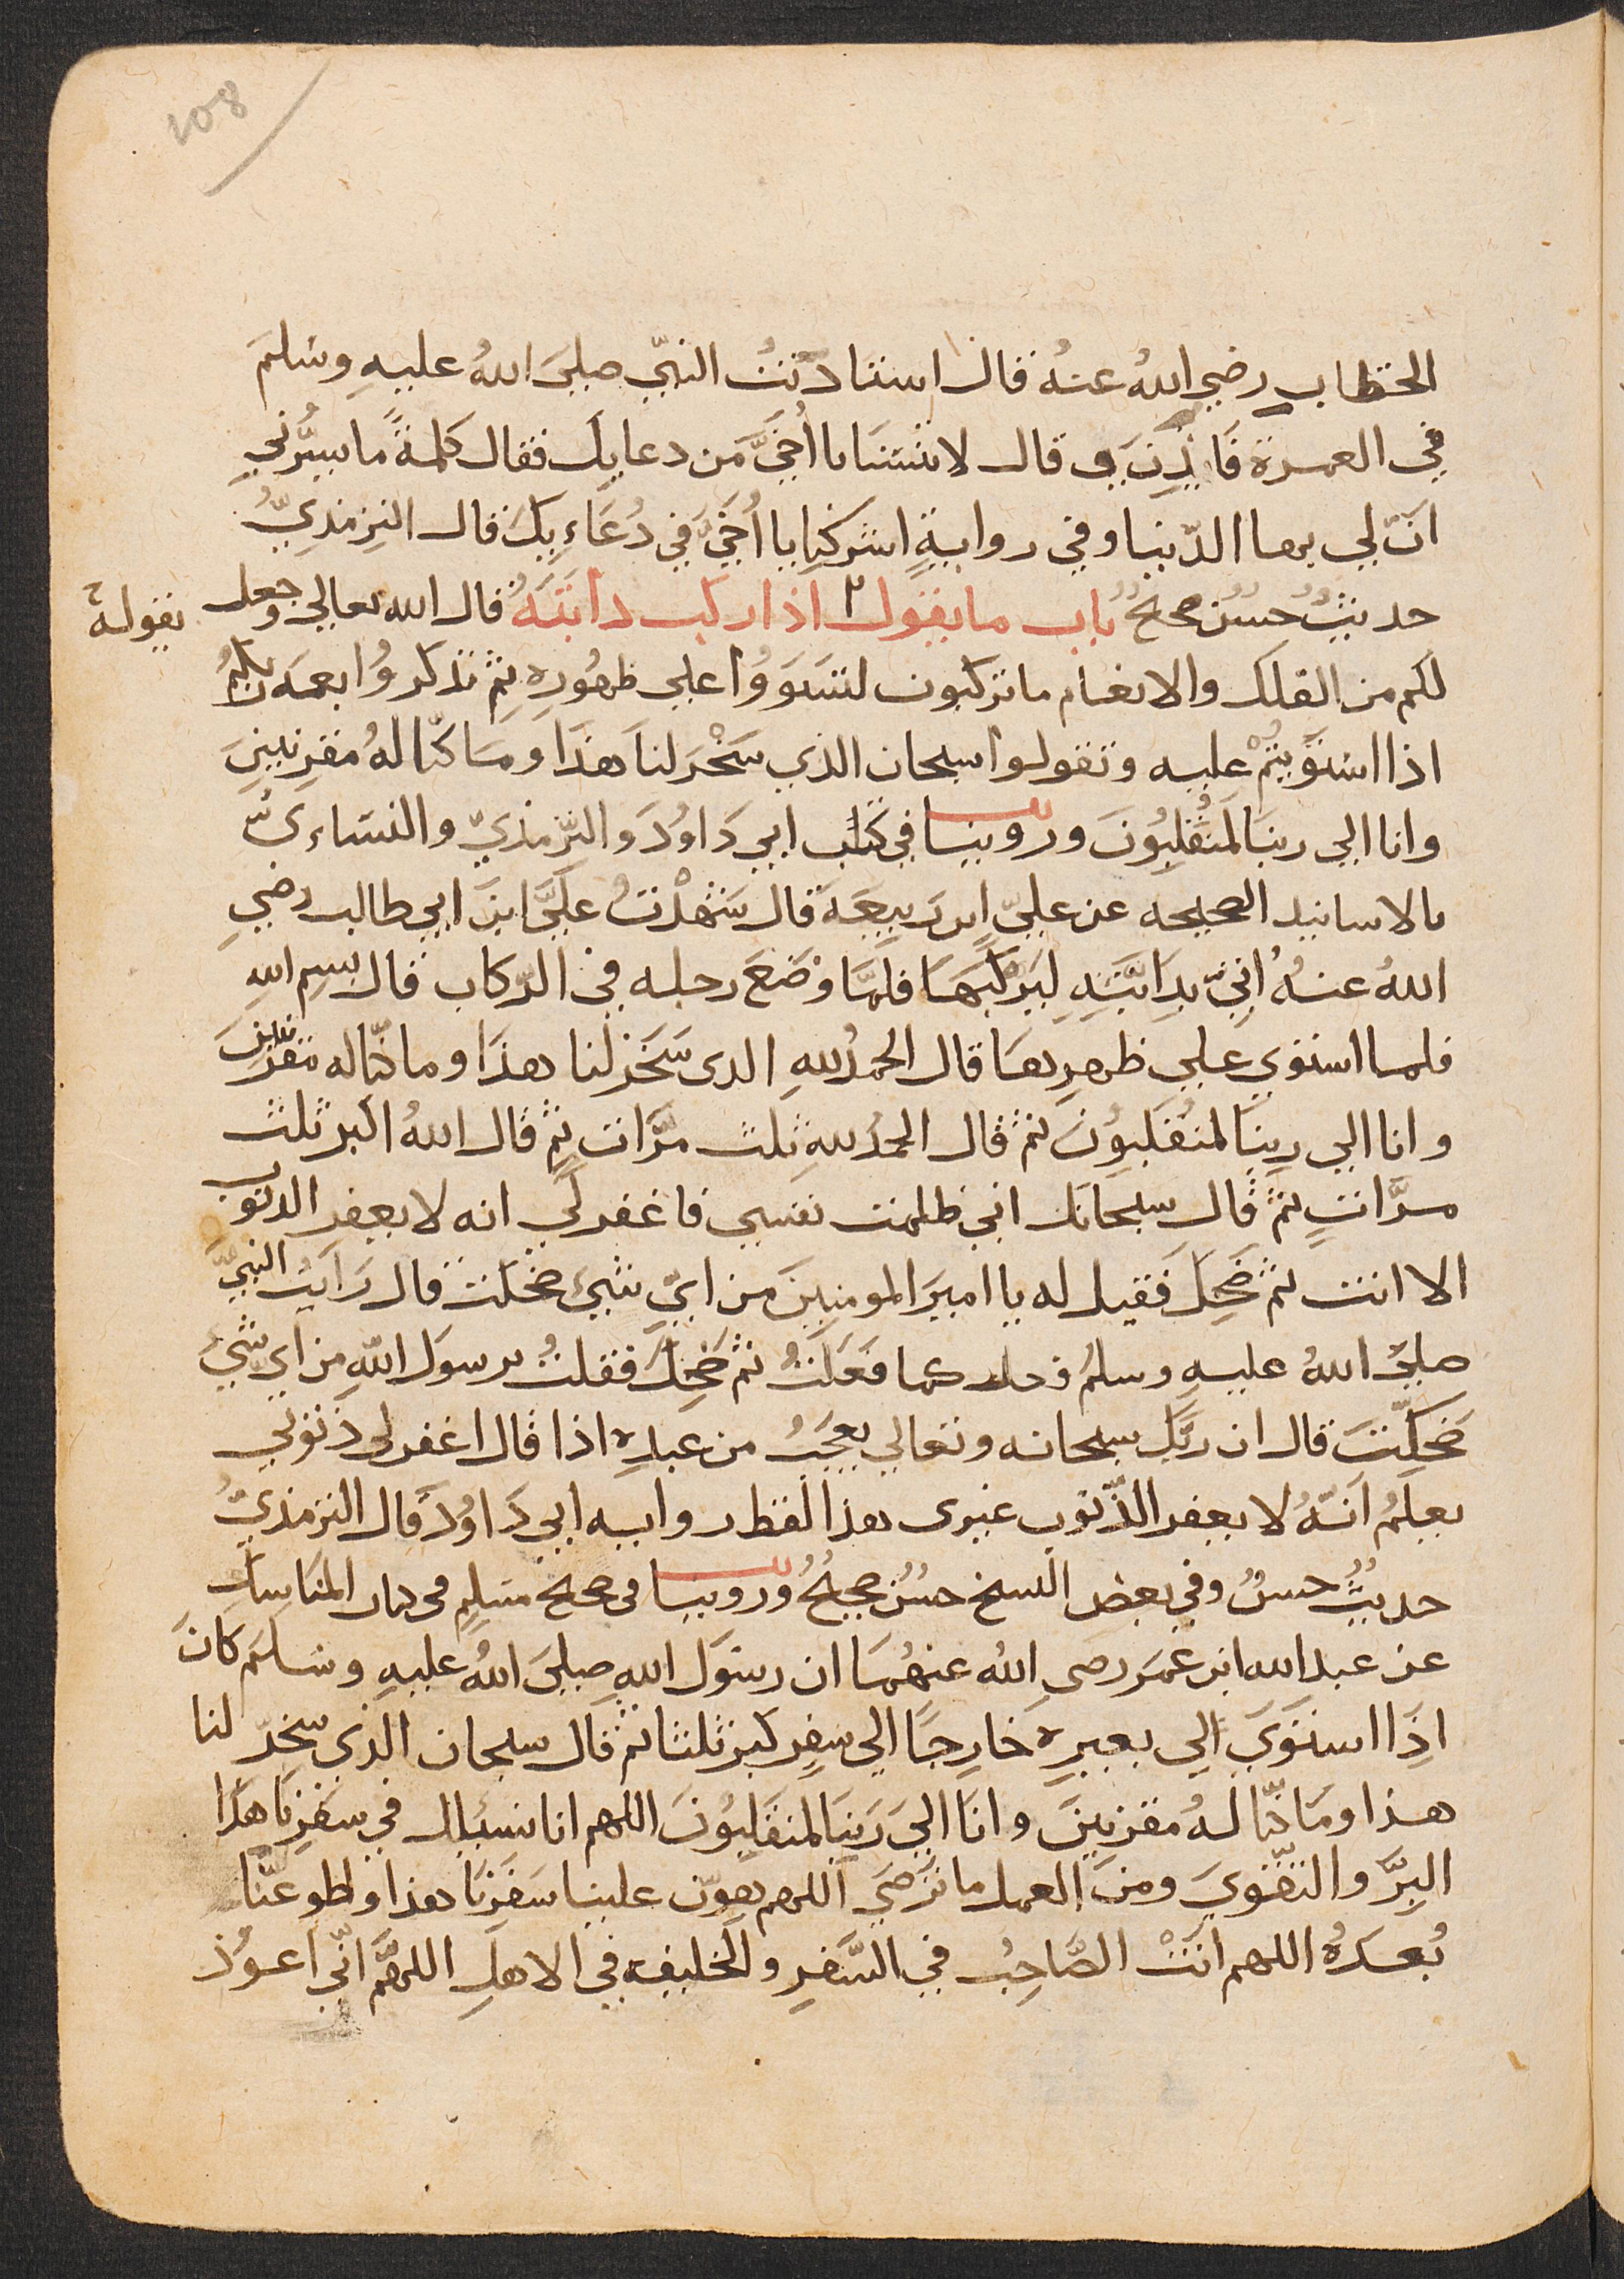 108
الخطاب رضي اللهُ عنهُ قال استادنتُ النبيّ صلىَ اللهُ عليهِ وسَلمَ
في العمرة فَاذِنَ لي وقال لا تنسَنَا يا أُخَيَّ مَن دعايِكَ فقال كلمةً ما يسُرُّنيِ
انَّ لي بها الدّنيا وفي روايةٍ اشركنِا يا أُخَيَّ في دُعَاءِيكَ قال التِرمذِيُّ
حديثٌ حسَنٌ صحيحٌ بُاب ما يقول اذا ركب دابَّتَهُ قال الله تعالي وجعل
يقوله
لكم من الفلك والانعام ما تركبون لتستَوَوُا علي ظهُورِه ثم تذكروُا نعمَه ربّكمُ
اذا استوَيتُمْ عليه وتقولوا سبحان الذي سَخْرَ لناَ هذَا ومَا كنّا لهُ مقرِنيِنِ
وانا الي ربنَا لمَنُقلِبُونَ وروينا في كتاب ابي دَاوُدَ والترّمذيّ والنسَاءيّ
بالاسانيد الصحيحه عن عليّ ابن ربيِعَهَ قال شَهْدْتُ عليَّ ابنَ ابي طالب رضيِ
اللهُ عنهُ اُتِيَ بدِابَّتهِ ليَرْكَبَهَا فلمَّا وضَعَ رجله في الرّكاب قال بسِم اللهِ
فلما استوي علي ظهرِها قال الحمدُ للهِ الدى سَخر لنا هذَا وما كنّا له مقرنين
وانا الي ربِنَا لمنُقَلبِوُنَ ثم قال الحمدُ للهِ ثلث مرّات ثمِ قال اللهُ اكبر ثلث
مرَّاتٍ ثم قال سبحانك اني ظلمت نفسي فاغفر لي انه لا يغفِر الدنوب
الا انت ثم ضَحِكَ فَقيل له يا اميرَ المومنِينَ من ايّ شيئ ضحكت قال رَايتُ النبيَّ
صليّ اللهُ عليهِ وسلمُ فعل كما فعَلتُ ثم ضَحِكَ فقلتُ يرسولَ اللّهِ من اي شيئ
ضَحكِّتَ قال ان ربَّكَ سبحانه وتعالي يعجَبُ من عبدِه اذا قال اغفر لي ذنوبي
يعلمُ اَنّهُ لا يغفر الذّنوب غيرى هذا لفظ روايه ابي دَاوُدَ قال الترمذيُّ
حديثٌ حسنٌ وفي بعض النسخ حسنٌ صحيحٌ وروينا في صحيح مسَلمٍ في كتاب المنَاسِك
عن عبد الله ابن عمَر رضي اللهُ عنهُمَا ان رسَول اللهِ صليَ اللهُ عليهِ وسَلمَ كانَ
اذَا استوَيَ الِي بعيِرِه خَارِجًا الي سفِرٍ كبر ثلثا ثم قال سبحان الذي سخرّ لنا
هذا ومَا كنّا لهُ مقرنِينَ وانَا اليَ رَبنِا لمنقَلبِوُنَ اللهم انا نسئلك في سَفرِنَا هذَا
البِرَّ والتقّويَ ومنَ العمل ما ترضَي اللهم هوّن علينا سَفَرِنَا هذا واطو عنَّا
بُعدَهُ اللهم انتْ الصَّاحِبُ في السَّفرِ والخليفه في الاهلِ اللهمَّ انّي اعوُذ